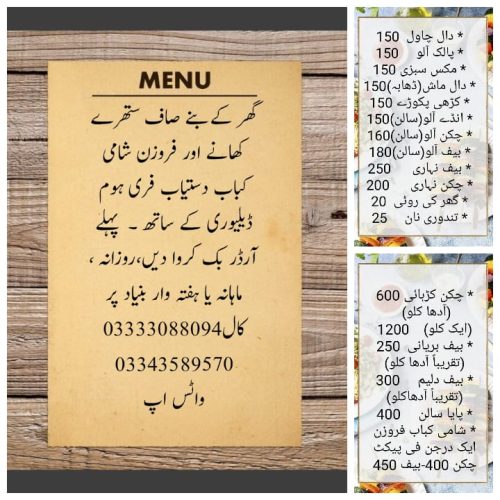 MENU
گھر کے بنے صاف ستھرے
کھانے اور فروزن شامی
کباب دستیاب فری ہوم
ڈیلیوری کے ساتھ ۔ پہلے
آرڈر بک کروا دیں،روزانہ ،
ماہانہ یا ہفتہ وار بنیاد پر
کال03333088094
03343589570
واٹس اپ
* دال چاول 150
* پالک آلو 150
* مکس سبزی 150
* دال ماش(ڈھابہ)150
* کڑھی پکوڑے 150
* انڈے آلو(سالن)150
* چکن آلو(سالن)160
* بیف آلو(سالن)180
* بیف نہاری 250
* چکن نہاری 200
* گھر کی روٹی 20
* تندوری نان 25
* چکن کڑہائی 600
(آدھا کلو)
(ایک کلو) 1200
* بیف بریانی 250
(تقریباً آدھا کلو)
* بیف دلیم 300
(تقریباً آدھاکلو)
* پایا سالن 400
* شامی کباب فروزن
ایک درجن فی پیکٹ
چکن 400-بیف 450